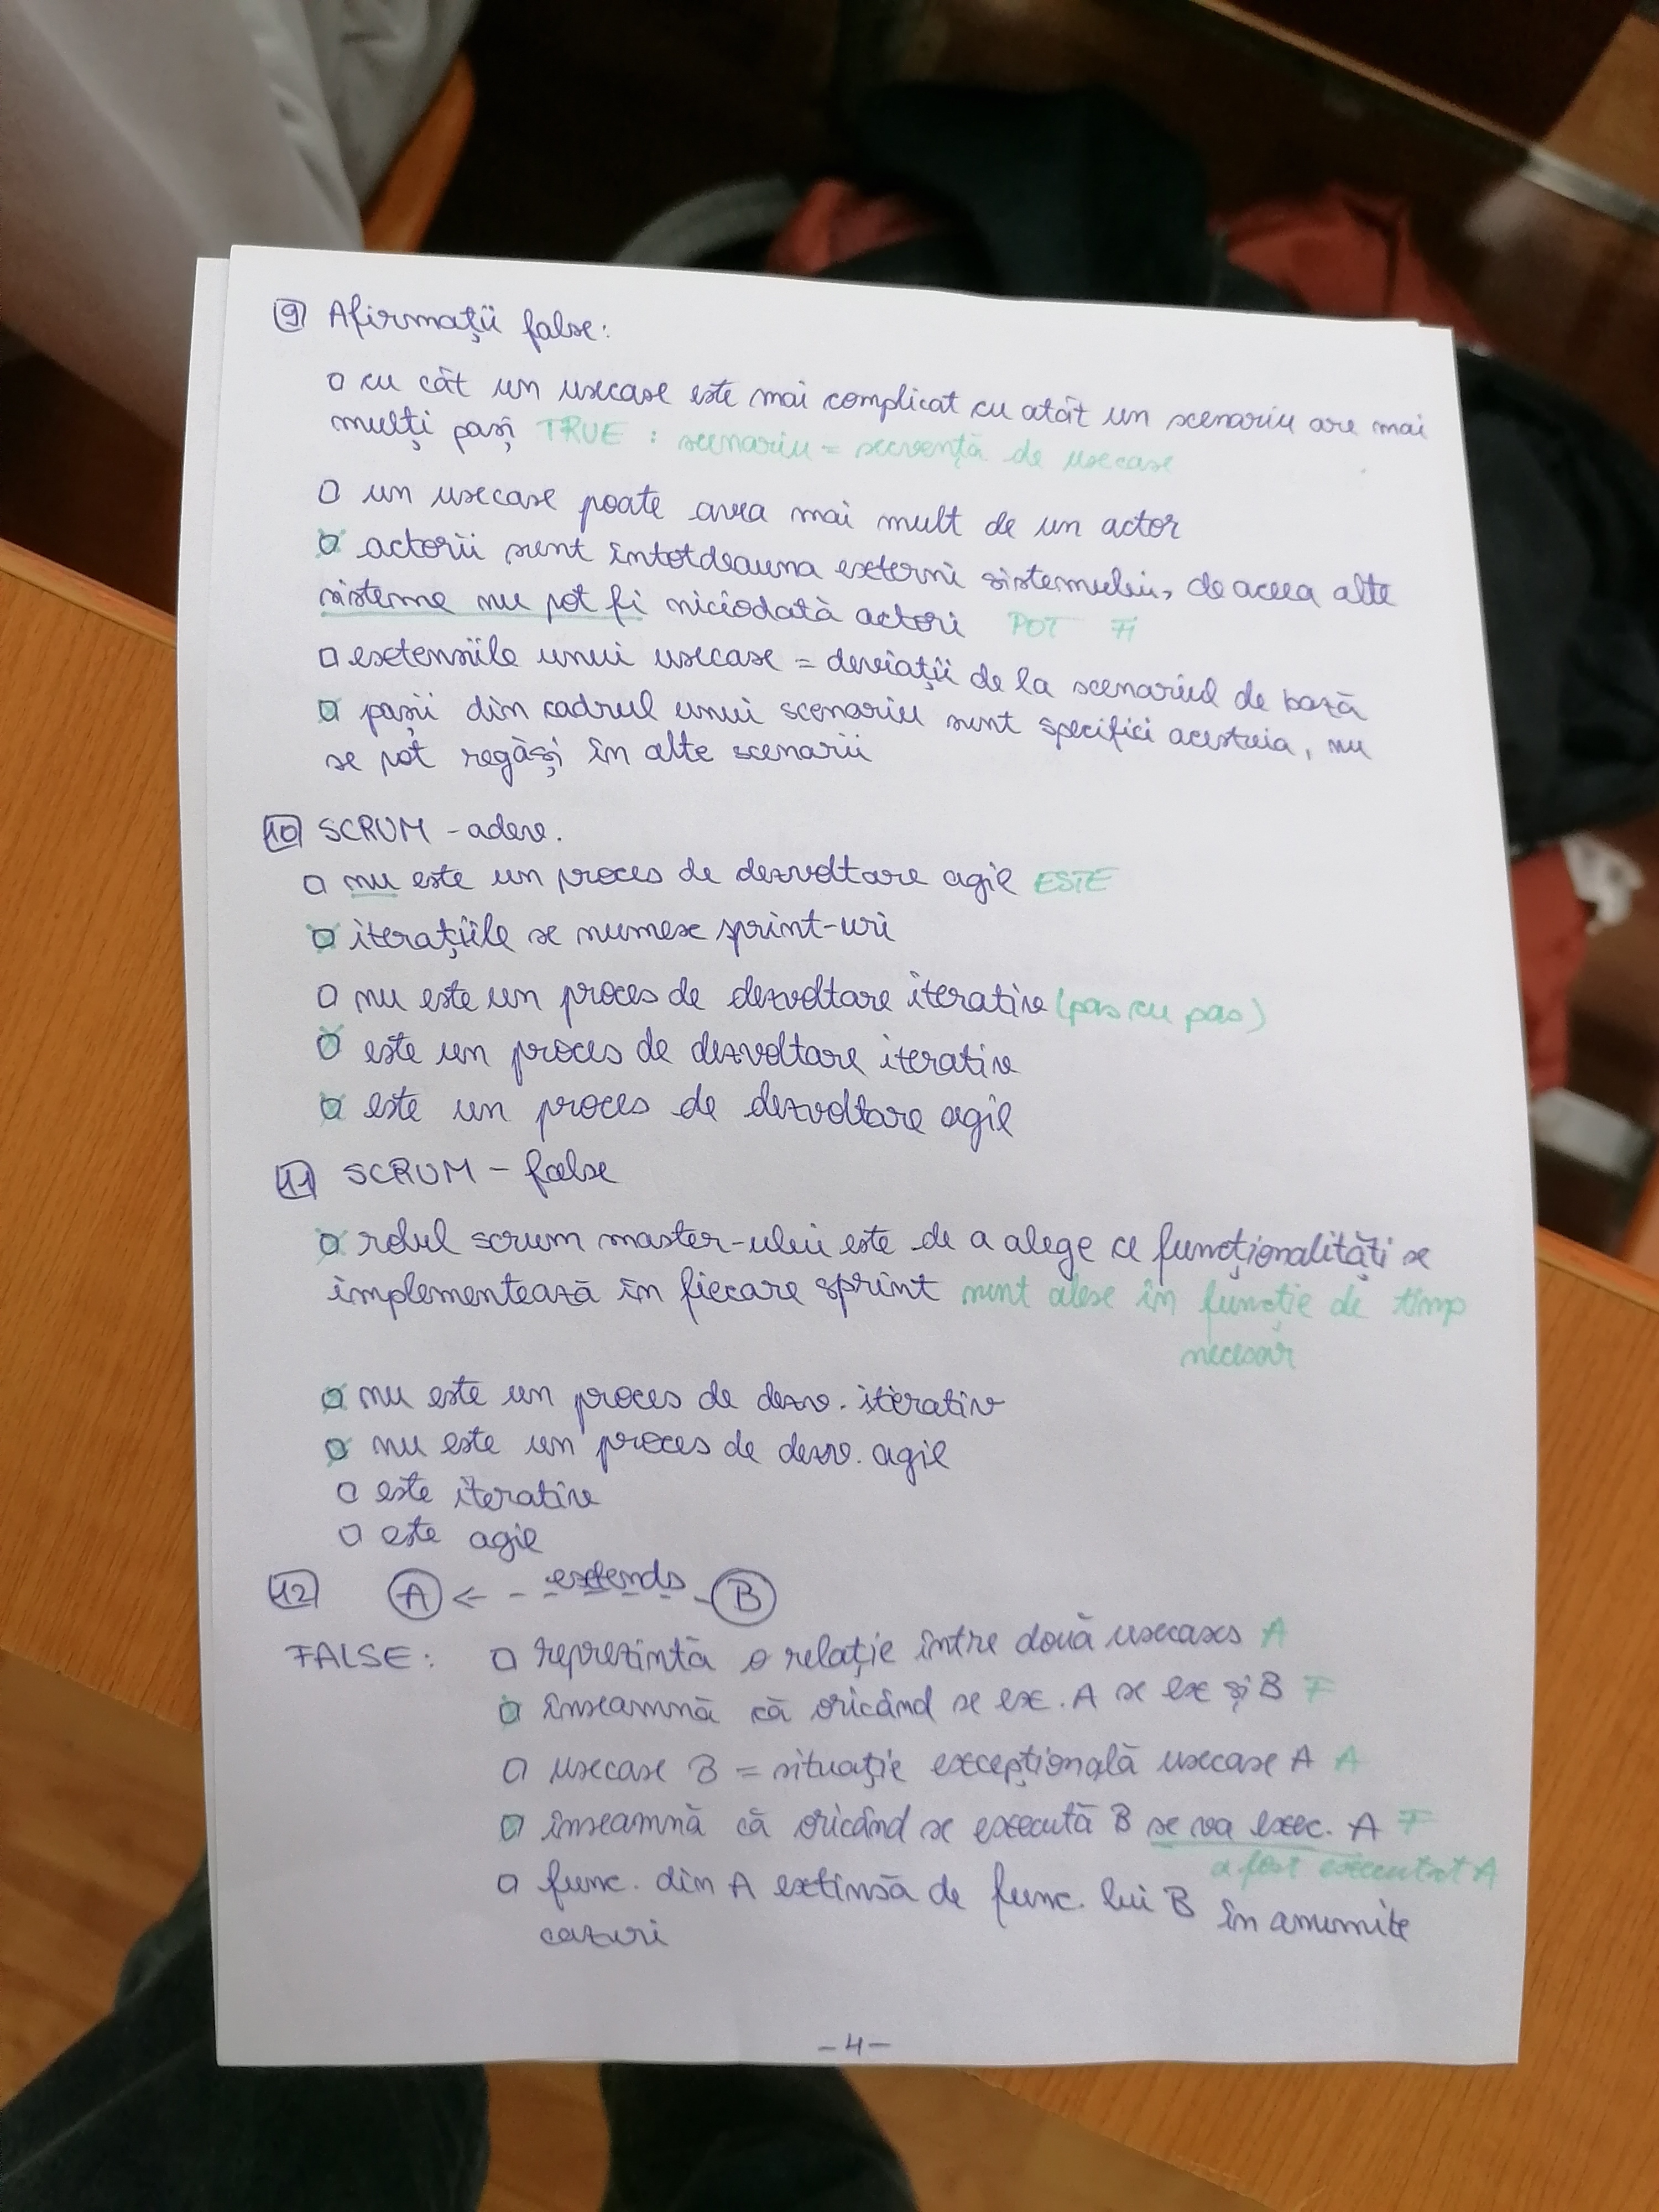 9 Afirmații false:
□ cu cât un usecase este mai complicat cu atât un scenariu are mai
mulți pași TRUE : scenariu = secvență de usecase
□ un usecase poate avea mai mult de un actor
□ actorii sunt întotdeauna externi sistemului, de aceea alte
sisteme nu pot fi niciodată actori POT FI
□ extensiile unui usecase = deviații de la scenariul de bază
□ pașii din cadrul unui scenariu sunt specifici acestuia, nu
se pot regăsi în alte scenarii
10 SCRUM - adev.
□ nu este un proces de dezvoltare agil ESTE
□ iterațiile se numesc sprint-uri
□ nu este un proces de dezvoltare iterativ (pas cu pas)
□ este un proces de dezvoltare iterativ
□ este un proces de dezvoltare agil
11 SCRUM - false
□ rolul scrum master-ului este de a alege ce funcționalități se
implementează în fiecare sprint sunt alese în funcție de timp
necesar
□ nu este un proces de dezv. iterativ
□ nu este un proces de dezv. agil
□ este iterativ
□ este agil
12 A <- - extends - B
FALSE: □ reprezintă o relație între două usecases A
□ înseamnă că oricând se ex. A se ex și B F
□ usecase B = situație excepțională usecase A A
□ înseamnă că oricând se execută B se va exec. A F
a fost executat A
□ func. din A extinsă de func. lui B în anumite
cazuri
-4-